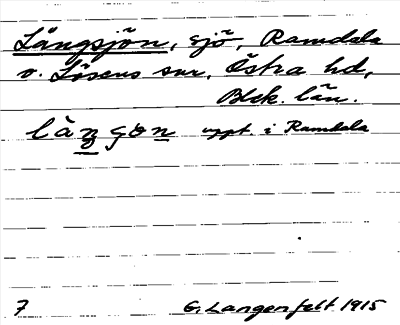 Långsjön, sjö, Ramdala
o. Lösens snr, Östra hd,
Blek. län.
làŋʂon uppt. i Ramdala
7 G. Langenfelt 1915